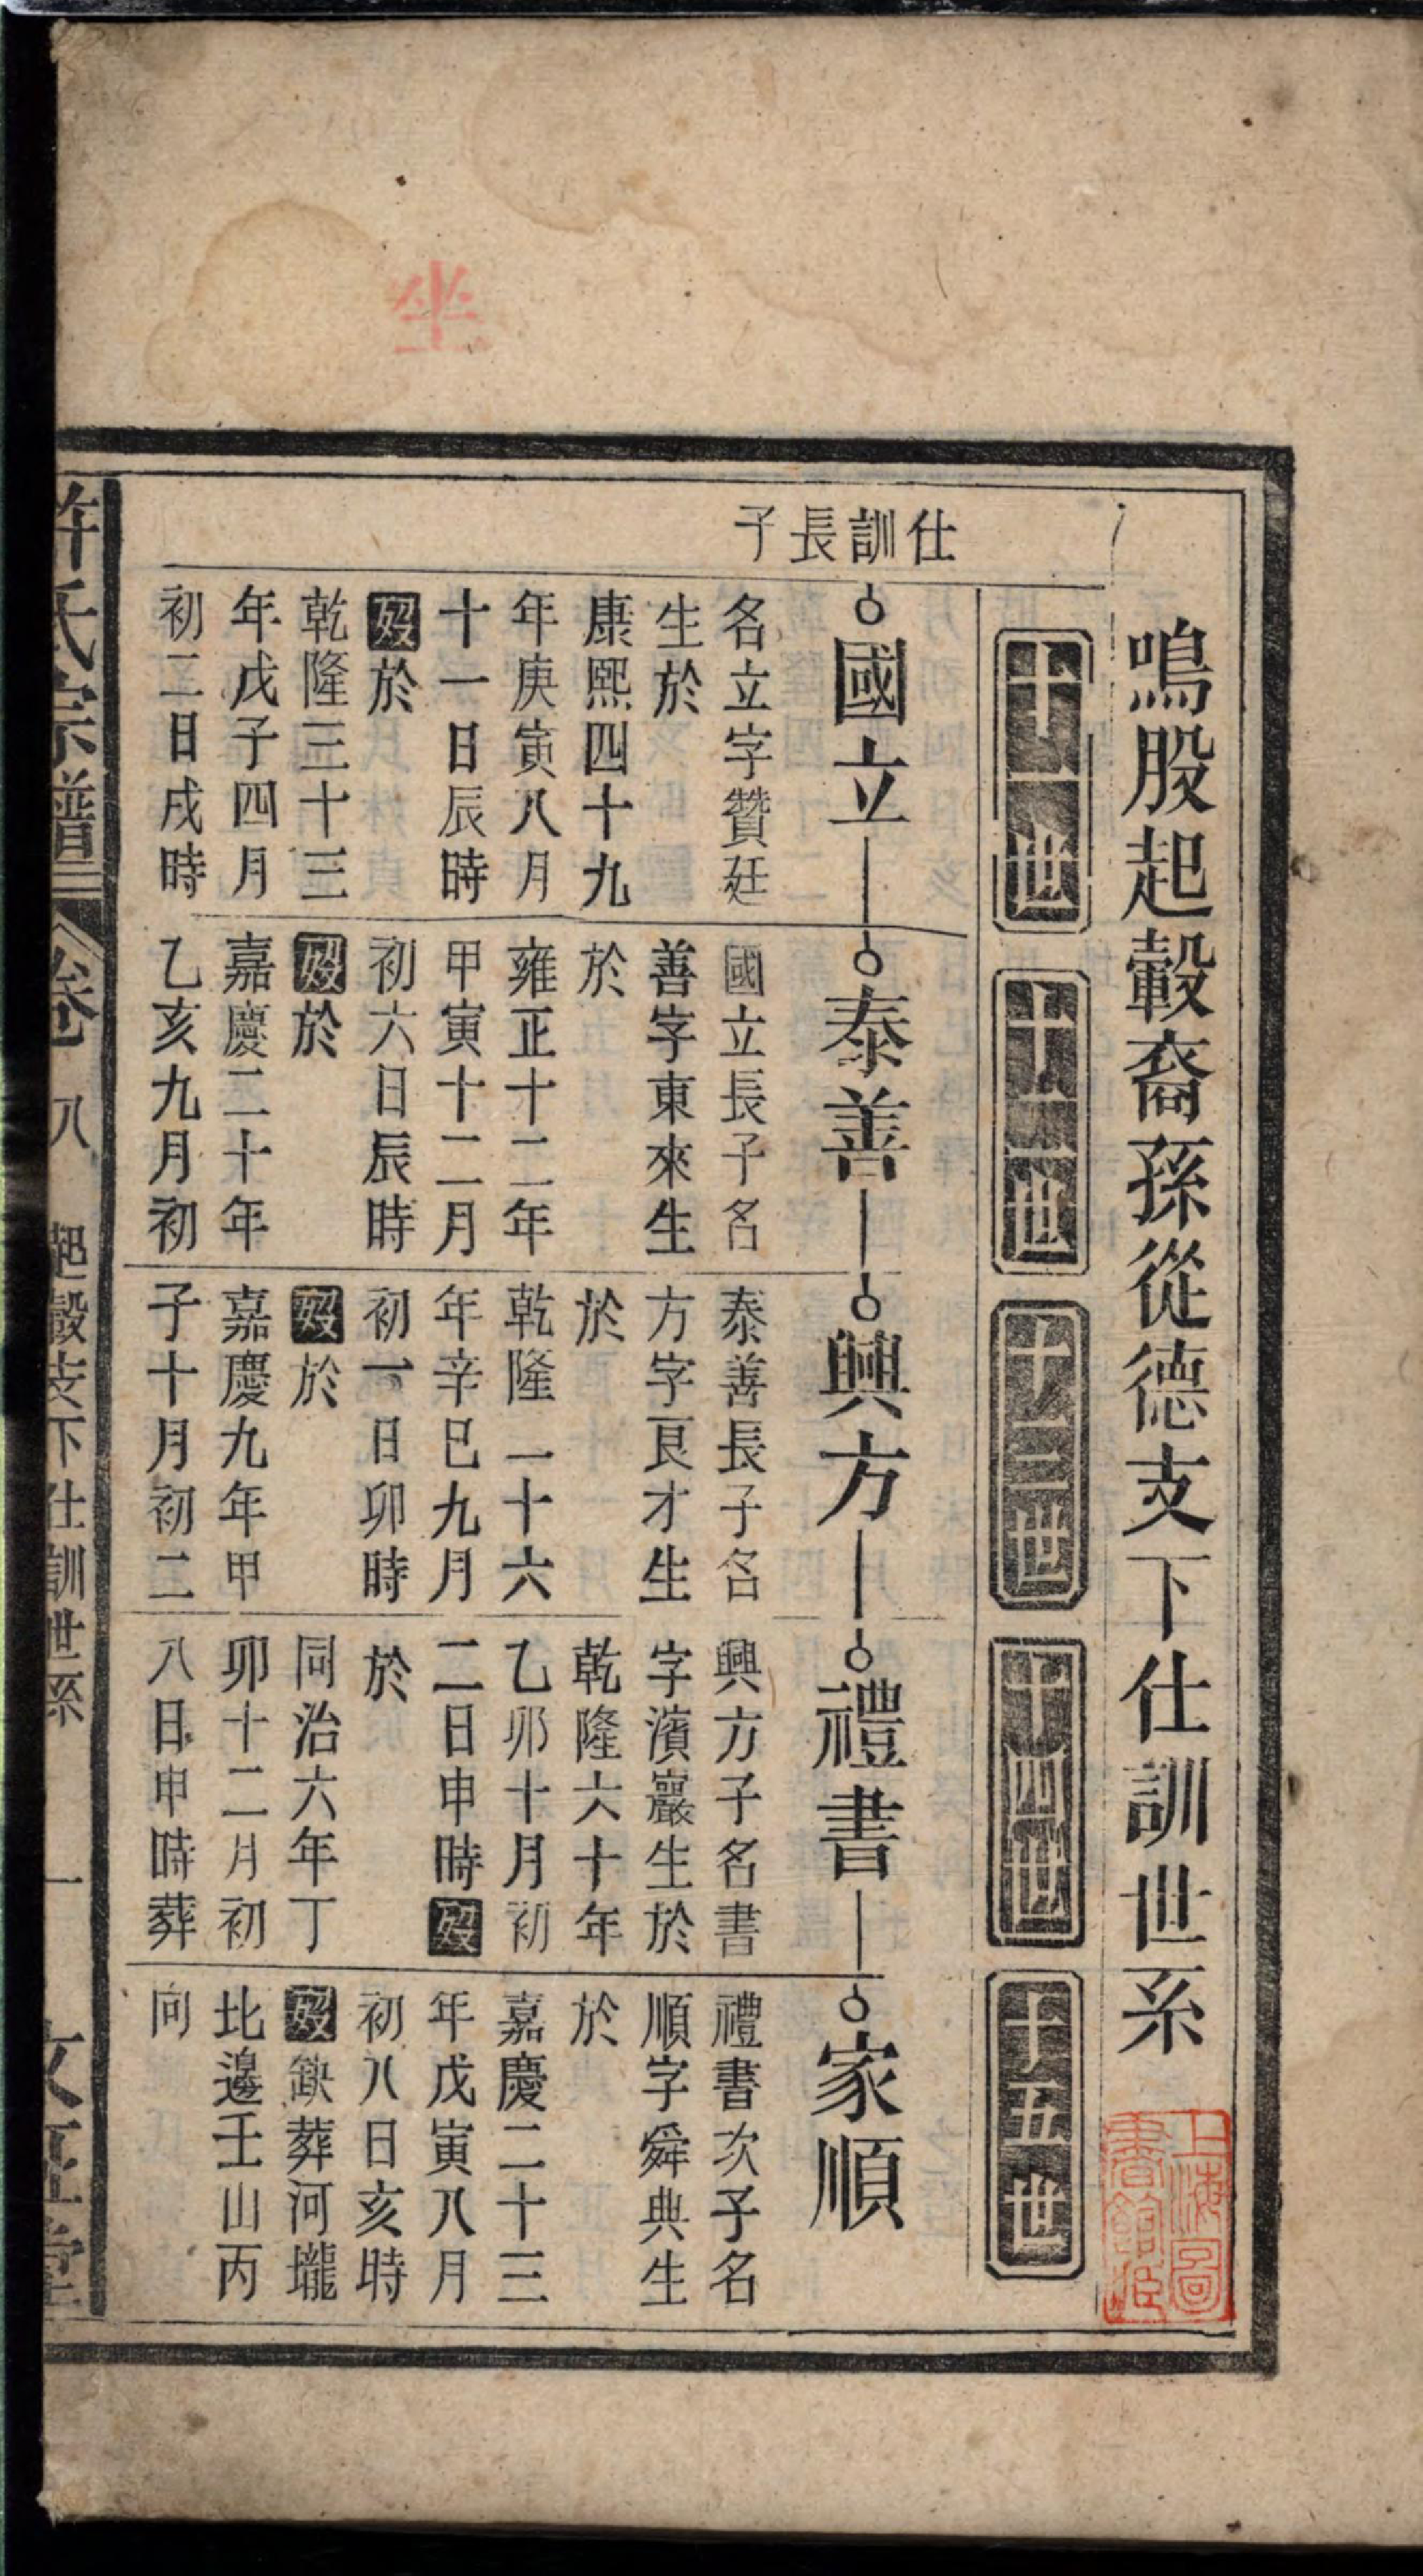 鳴股起轂裔孫從德支下仕訓世系
十一世
十二世
十三世
十四世
十五世
仕訓長子
國立
名立字贊廷
生於
康熙四十九
年庚寅八月
十一日辰時
歿於
乾隆三十三
年戊子四月
初二日戌時
泰善
國立長子名
善字東來生
於
雍正十二年
甲寅十二月
初六日辰時
歿於
嘉慶二十年
乙亥九月初
興方
泰善長子名
方字良才生
於
乾隆二十六
年辛巳九月
初一日卯時
歿於
嘉慶九年甲
子十月初二
禮書
興方子名書
字濱巖生於
乾隆六十年
乙卯十月初
二日申時歿
於
同治六年丁
卯十二月初
八日申時葬
家順
禮書次子名
順字舜典生
於
嘉慶二十三
年戊寅八月
初八日亥時
歿缺葬河壠
北邊壬山丙
向
許氏宗譜
卷八
起轂支下仕訓世系
一
坐
上海圖
書館藏